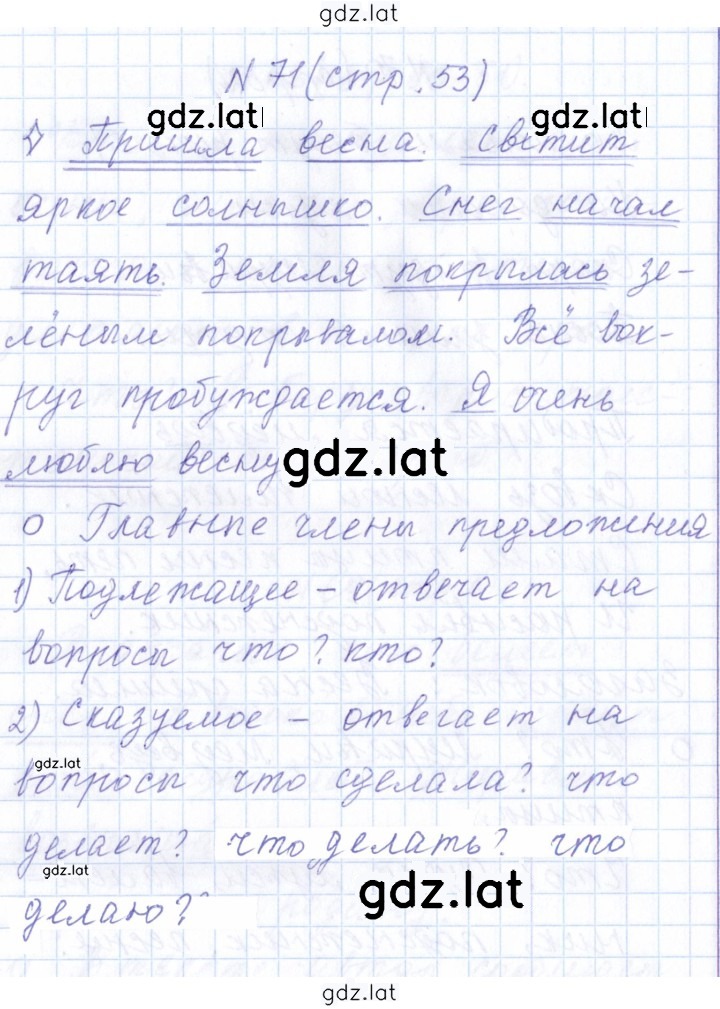 gdz.lat
N 71 (стр. 53)
gdz.lat gdz.lat
Пришла весна. Светит
яркое солнышко. Снег начал
таять. Земля покрылась зе-
лёным покрывалом. Всё вок-
руг пробуждается. Я очень
люблю весну
gdz.lat
О Главные члены предложения
1) Подлежащее – отвечает на
вопросы что? кто?
2) Сказуемое – отвечает на
gdz.lat
вопросы что сделала? что
делает? что делать? что
gdz.lat
gdz.lat
делаю?
gdz.lat